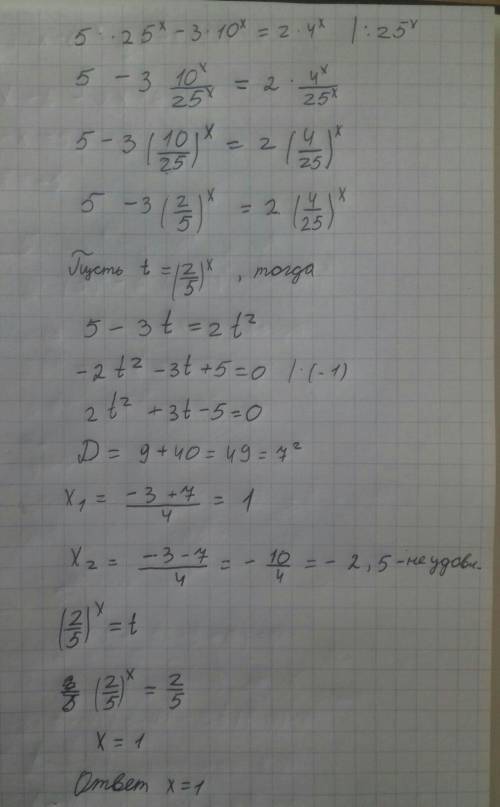 5 · 25^x − 3 · 10^x = 2 · 4^x  | : 25^x
5 − 3 10^x/25^x = 2 · 4^x/25^x
5 − 3 (10/25)^x = 2 (4/25)^x
5 − 3 (2/5)^x = 2 (4/25)^x
Пусть t = (2/5)^x , тогда
5 − 3t = 2t²
−2t² − 3t + 5 = 0  | · (−1)
2t² + 3t − 5 = 0
D = 9 + 40 = 49 = 7²
x₁ = (−3 + 7)/4 = 1
x₂ = (−3 − 7)/4 = − 10/4 = − 2,5 - не удовл.
(2/5)^x = t
(2/5)^x = 2/5
x = 1
Ответ x = 1